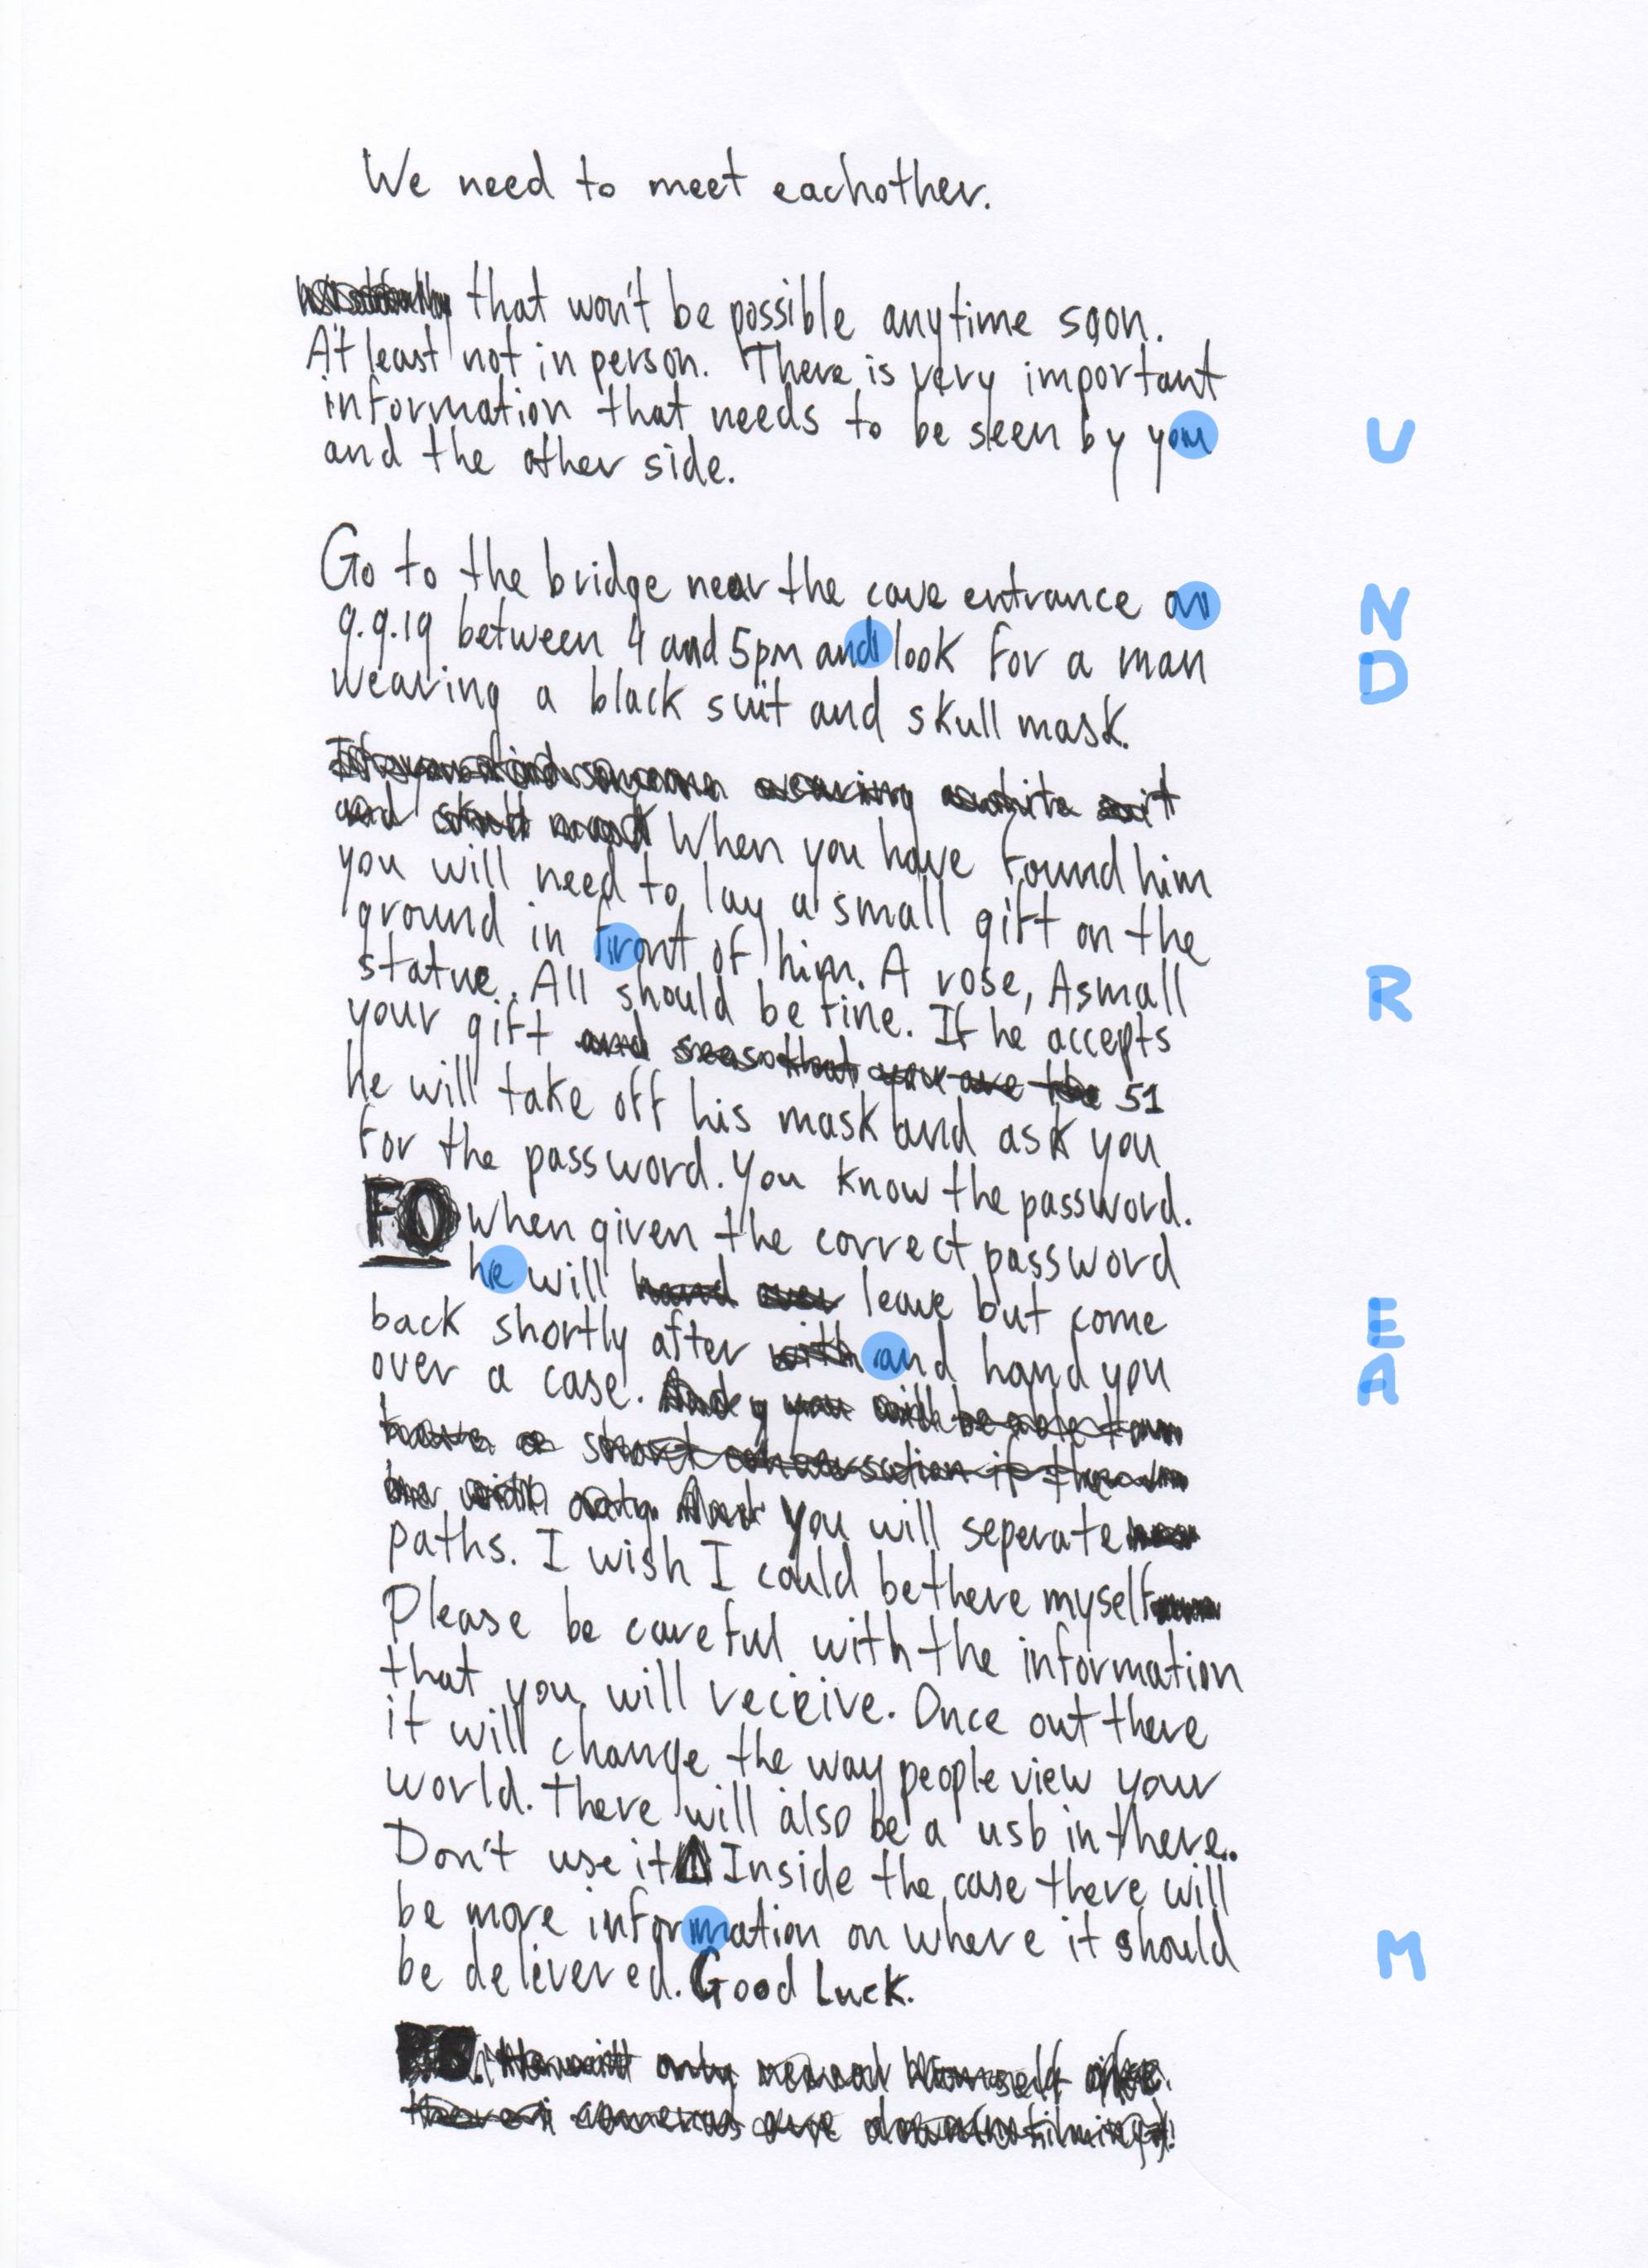 We need to meet eachother.
that won't be possible anytime soon.
At least not in person. There is very important
information that needs to be seen by you
U
and the other side.
Go to the bridge near the cave entrance on
N
9.9.19 between 4 and 5pm and look for a man
D
wearing a black suit and skull mask.
When you have found him
you will need to lay a small gift on the
ground in front of him. A rose, A small
R
statue. All should be fine. If he accepts
your gift
51
he will take off his mask and ask you
for the password. You know the password.
FO when given the correct password
he will leave but come
E
back shortly after and hand you
A
over a case.
You will seperate
paths. I wish I could be there myself
Please be careful with the information
that you will receive. Once out there
it will change the way people view your
world. There will also be a usb in there.
Don't use it Inside the case there will
be more information on where it should
M
be delivered. Good Luck.